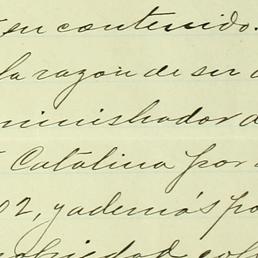 en contenido.
la razon de ser
ministrador d
Catalina por
02, y además po